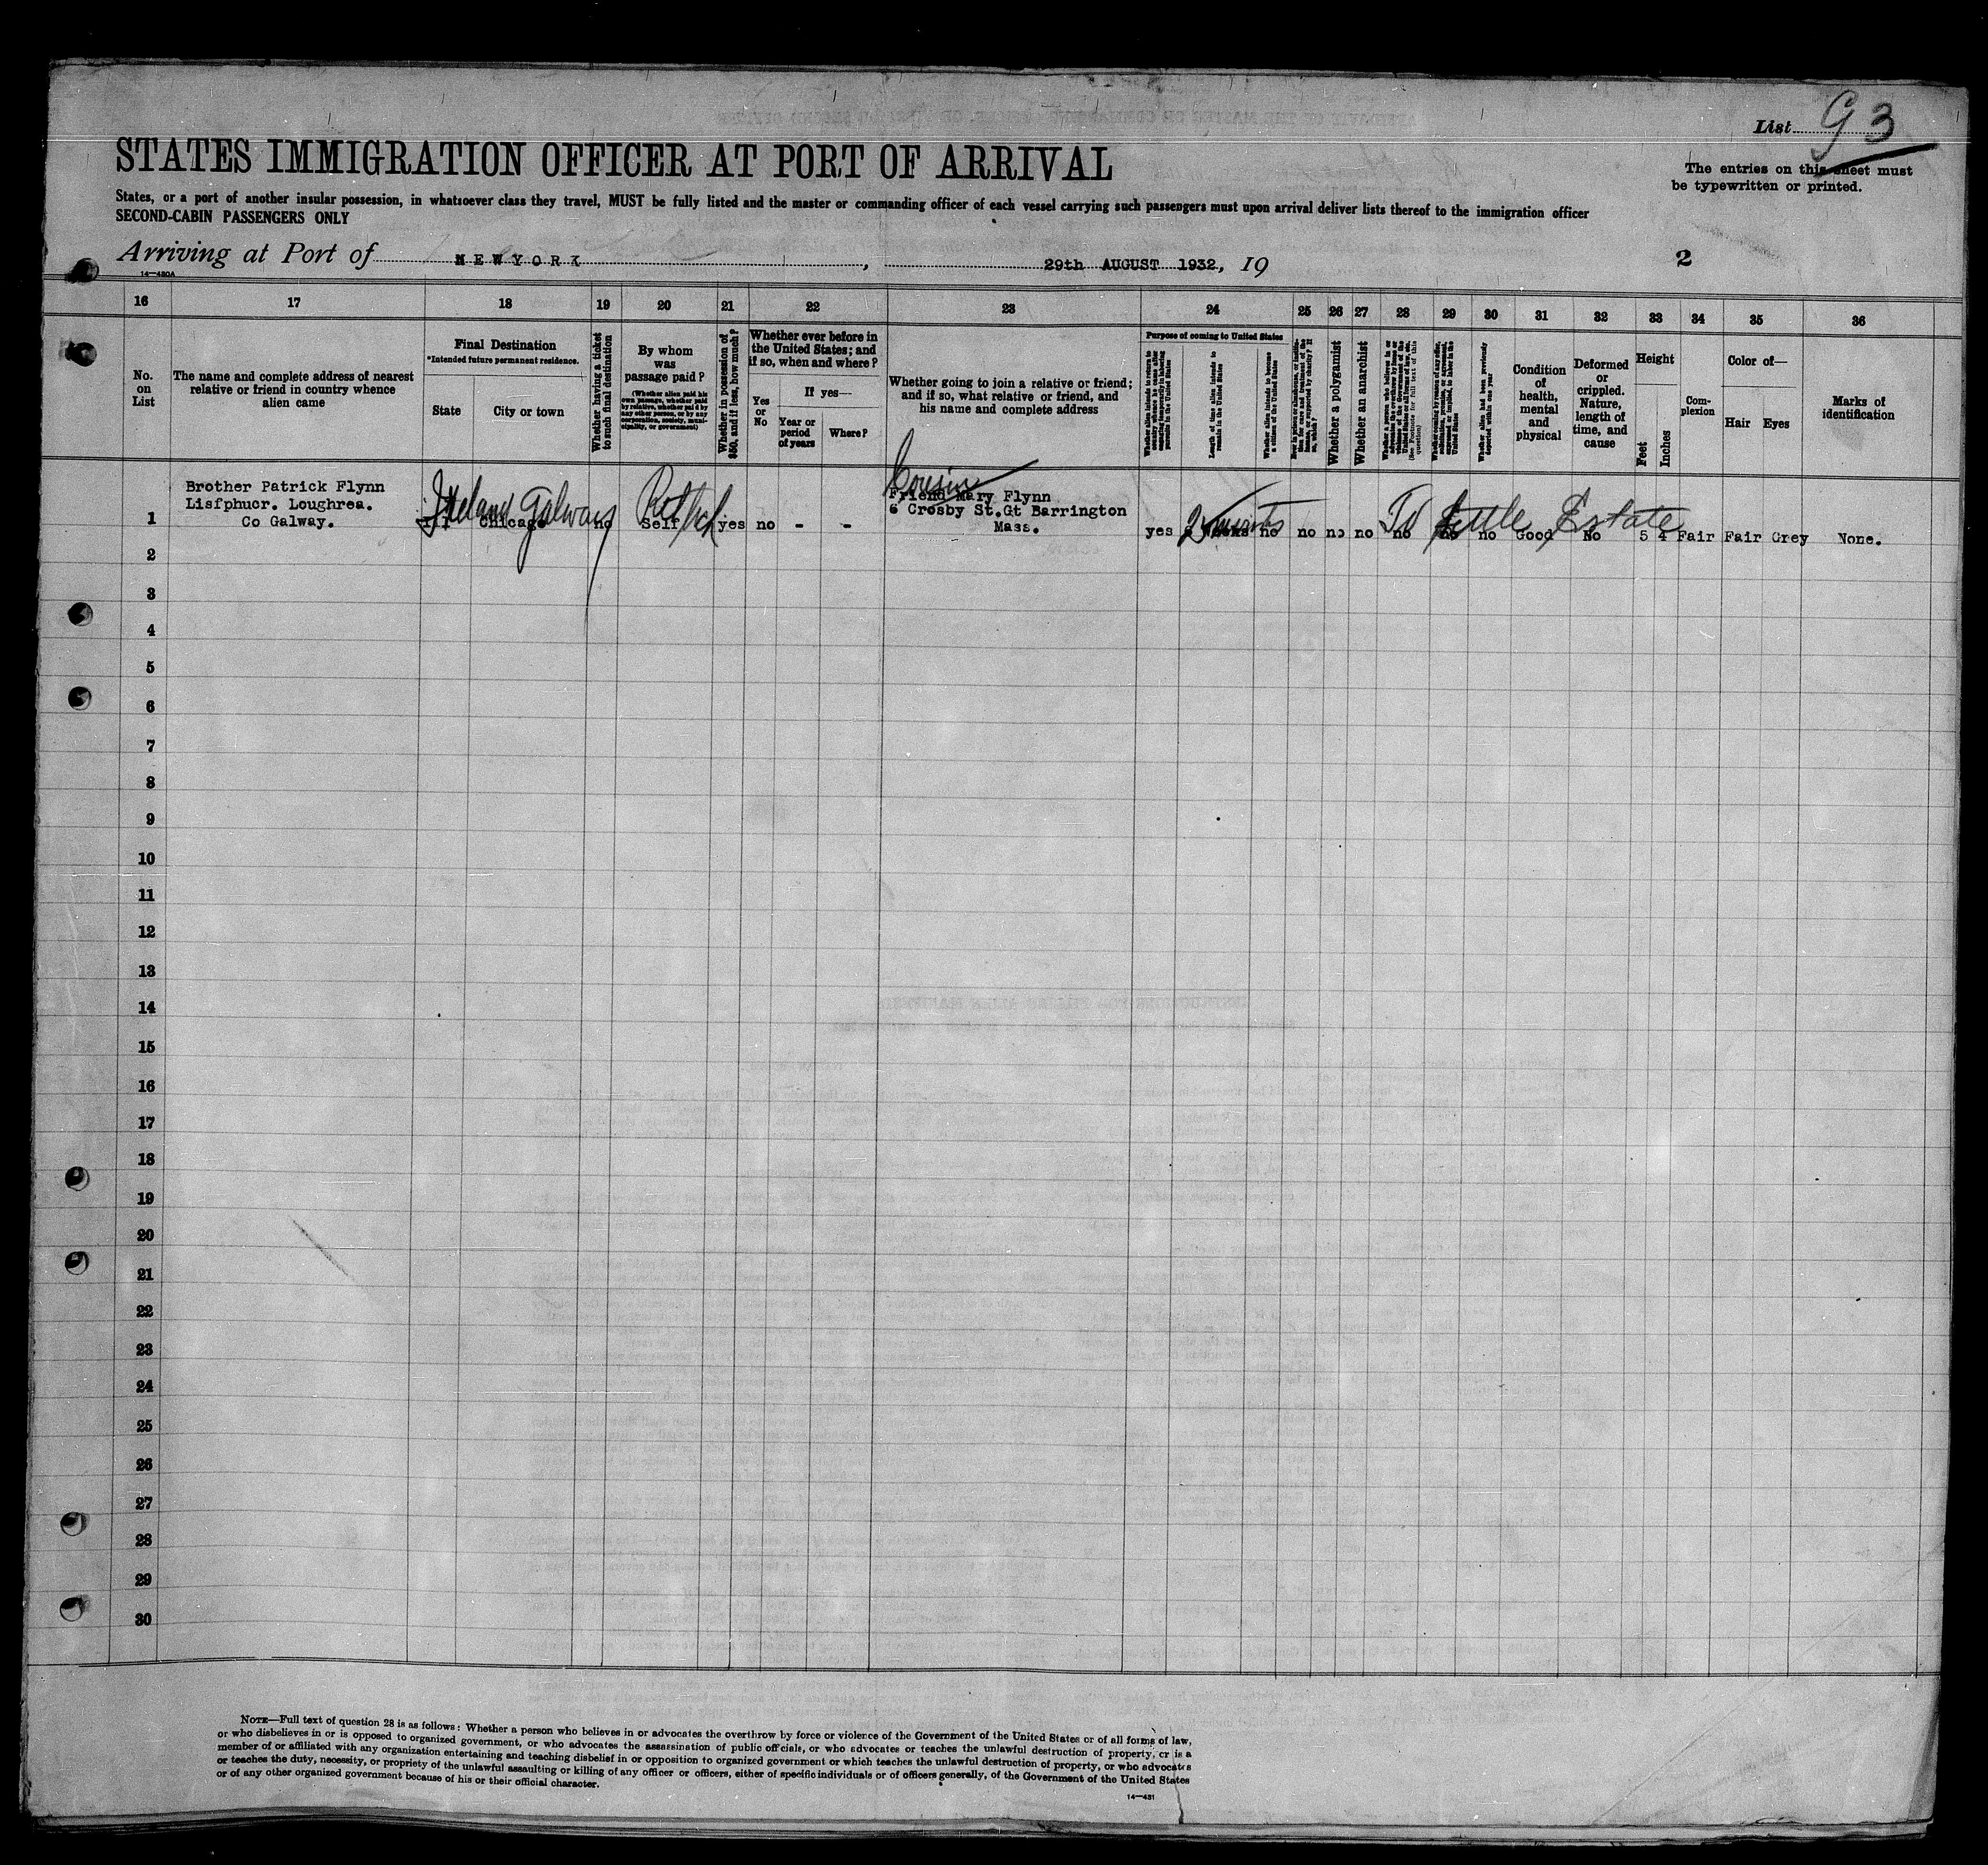 List G3
STATES IMMIGRATION OFFICER AT PORT OF ARRIVAL
The entries on this sheet must
be typewritten or printed.
States, or a port of another insular possession, in whatsoever class they travel, MUST be fully listed and the master or commanding officer of each vessel carrying such passengers must upon arrival deliver lists thereof to the immigration officer
SECOND-CABIN PASSENGERS ONLY
Arriving at Port of NEWYORK, 29th AUGUST 1932, 19
2
14—430A
16 17 18 19 20 21 22 23 24 25 26 27 28 29 30 31 32 33 34 35 36
No.
on
List
The name and complete address of nearest
relative or friend in country whence
alien came
Final Destination
*Intended future permanent residence.
State
City or town
Whether having a ticket
to such final destination
By whom
was
passage paid?
(Whether alien paid his
own passage, whether paid
by relative, whether paid by
any other person, or by any
corporation, society, muni-
cipality, or government)
Whether in possession of
$50, and if less, how much?
Whether ever before in
the United States; and
if so, when and where?
Yes
or
No
If yes—
Year or
period
of years
Where?
Whether going to join a relative or friend;
and if so, what relative or friend, and
his name and complete address
Purpose of coming to United States
Length of time alien intends to
remain in the United States
Whether alien intends to become
a citizen of the United States
Whether a polygamist
Whether an anarchist
(See Footnote for full text of this
question)
Whether alien had been previously
deported within one year
Condition
of
health,
mental
and
physical
Deformed
or
crippled.
Nature,
length of
time, and
cause
Height
Feet
Inches
Com-
plexion
Color of—
Hair
Eyes
Marks of
identification
Brother Patrick Flynn
Lisfphucr. Loughrea.
Co Galway.
Ireland Galway
Chicago no
Self yes no - -
Cousin
Friend Mary Flynn
6 Crosby St.Gt Barrington
Mass.
To Settle Estate
1 yes no no no no no no no Good No 5 4 Fair Fair Grey None.
2
3
4
5
6
7
8
9
10
11
12
13
14
15
16
17
18
19
20
21
22
23
24
25
26
27
28
29
30
NOTE—Full text of question 28 is as follows: Whether a person who believes in or advocates the overthrow by force or violence of the Government of the United States or of all forms of law,
or who disbelieves in or is opposed to organized government, or who advocates the assassination of public officials, or who advocates or teaches the unlawful destruction of property, or is a
member of or affiliated with any organization entertaining and teaching disbelief in or opposition to organized government or which teaches the unlawful destruction of property, or who advocates
or teaches the duty, necessity, or propriety of the unlawful assaulting or killing of any officer or officers, either of specific individuals or of officers generally, of the Government of the United States
or of any other organized government because of his or their official character.
14—431